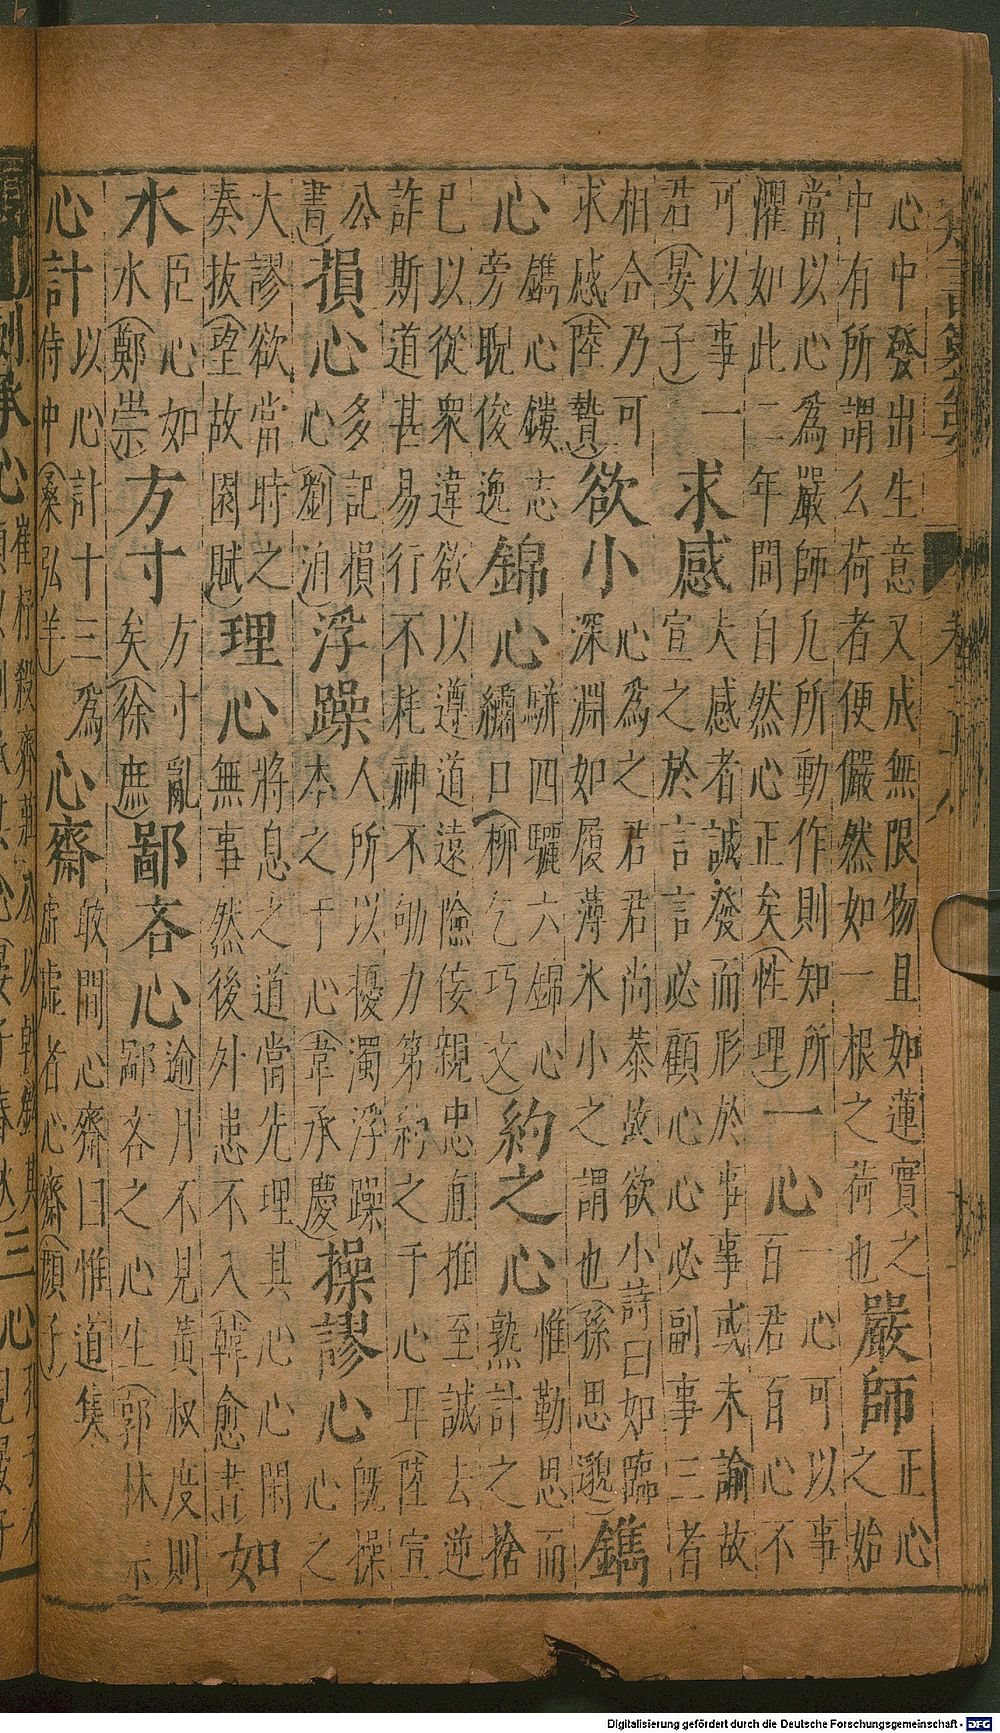 心中發出生意又成無限物且如蓮實之
中有所謂么荷者便儼然如一根之荷也
嚴師
正心
之始
當以心為嚴師凡所動作則知所
懼如此二年間自然心正矣(性理)
一心
一心可以事
百君百心不
可以事一
君(晏子)
求感
夫感者誠發而形於事事或未諭故
宣之於言言必顧心心必副事三者
相合乃可
求感(陸贄)
欲小
心為之君君尚恭故欲小詩曰如臨
深淵如履薄氷小之謂也(孫思邈)
鐫
心
鐫心鏤志
旁睨俊逸
錦心
駢四驪六錦心
繡口(柳乞巧文)
約之心
惟勤思而
熟計之捨
已以從衆違欲以遵道遠險佞親忠直推至誠去逆
詐斯道甚易行不耗神不劬力第約之于心耳(陸宣
公
書)
損心
多記損
心(劉洎)
浮躁
人所以擾濁浮躁
本之于心(韋承慶)
操謬心
既操
心之
大謬欲當時之
奏抜(望故園賦)
理心
將息之道當先理其心心閑
無事然後外患不入(韓愈書)
如
水
臣心如
水(鄭崇)
方寸
方寸亂
矣(徐庶)
鄙吝心
逾月不見黃叔度則
鄙吝之心生(郭林宗
心計
以心計十三為
侍中(桑弘羊)
心齋
敢問心齋曰惟道集
虛虛者心齋(顏子)
承心
崔杼殺齊莊公以戟
三心
Digitalisierung gefördert durch die Deutsche Forschungsgemeinschaft - DFG